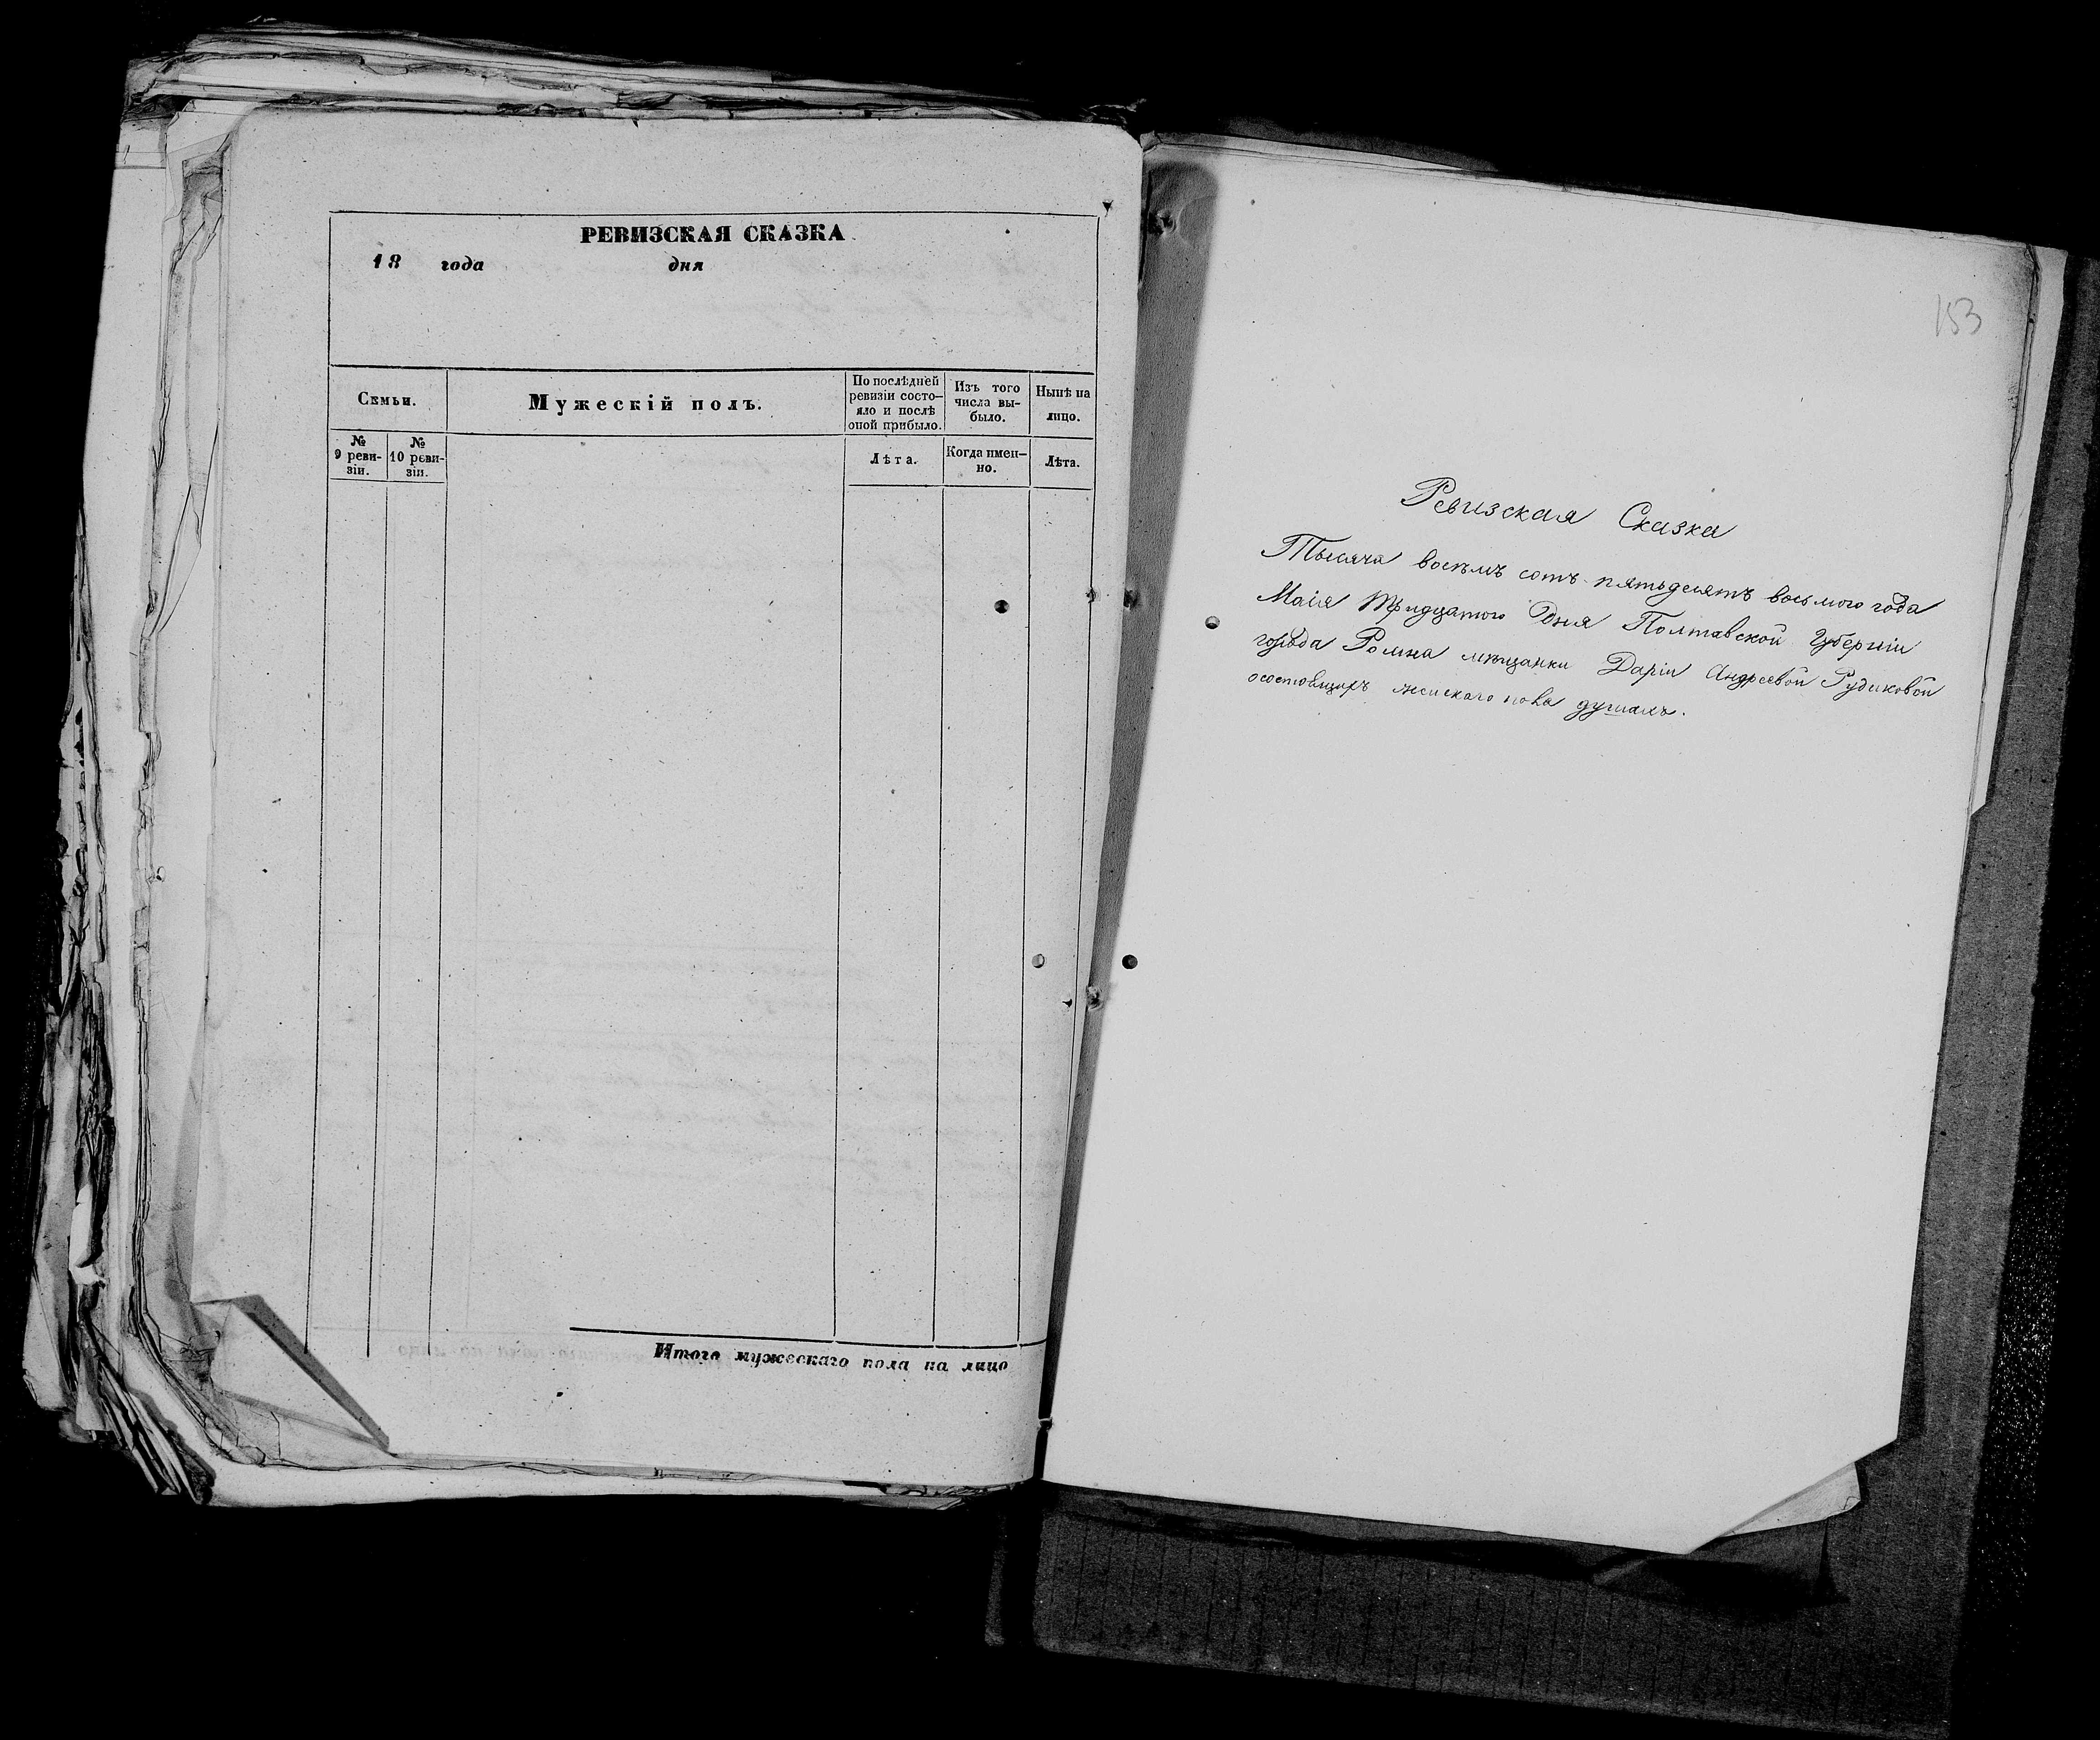 РЕВИЗСКАЯ СКАЗКА
18 года дня
Семьи.
Мужескій полъ.
По послѣдней
ревизіи состо-
яло и послѣ
оной прибыло.
Изъ того
числа вы-
было.
Нынѣ на
лицо.
№
9 реви-
зіи.
№
10 реви-
зіи.
Лѣта.
Когда имен-
но.
Лѣта.
Итого мужескаго пола на лицо
153
Ревизская Сказка
Тысяча восемъ сотъ пятьдесятъ восьмого года
Маія тридцатого Дня Полтавской Губерніи
города Ромна мѣщанки Дарiи Андреевой Рудиковой
осостоящихъ женскаго пола душахъ.